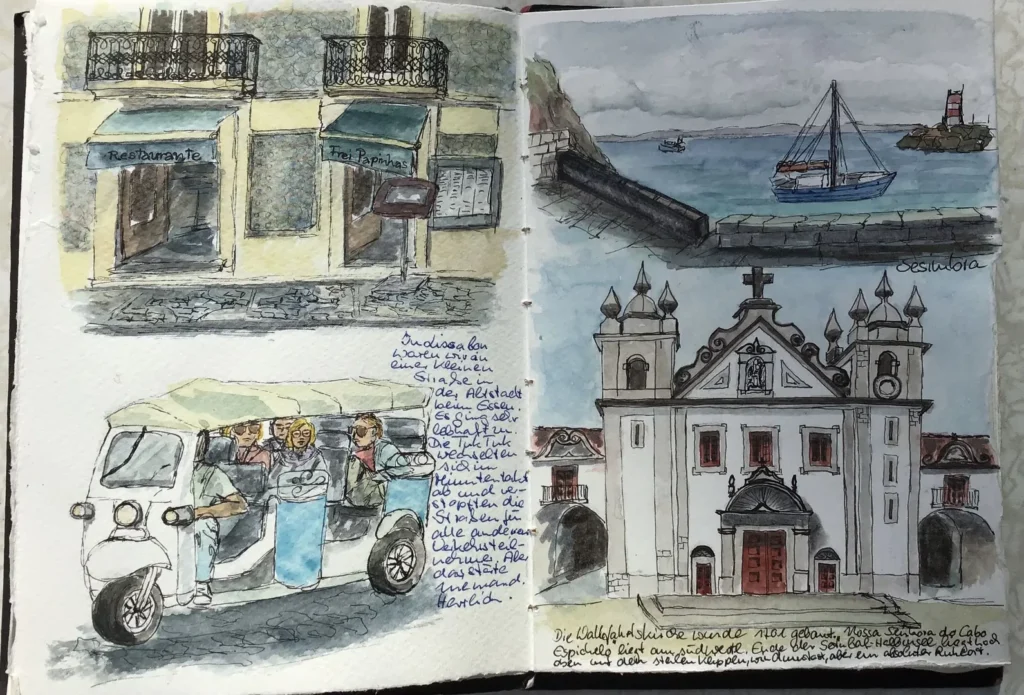 Restaurante
Frei Papinhas
In Lissabon
waren wir in
einer kleinen
Straße in
der Altstadt
beim Essen.
Es ging sehr
lebhaft zu.
Die Tuk Tuk
wechselten
sich im
Minutentakt
ab und ver-
stopften die
Straßen für
alle anderen
Verkehrsteil-
nehmer. Aber
das störte
niemand.
Herrlich.
Sesimbra
Die Wallfahrtskirche wurde 1701 gebaut. Nossa Senhora do Cabo
Espichelo liegt am südwestl. Ende der Setúbal-Halbinsel liegt hoch
oben auf dem steilen Klippen, aber ein absoluter Ruheort.